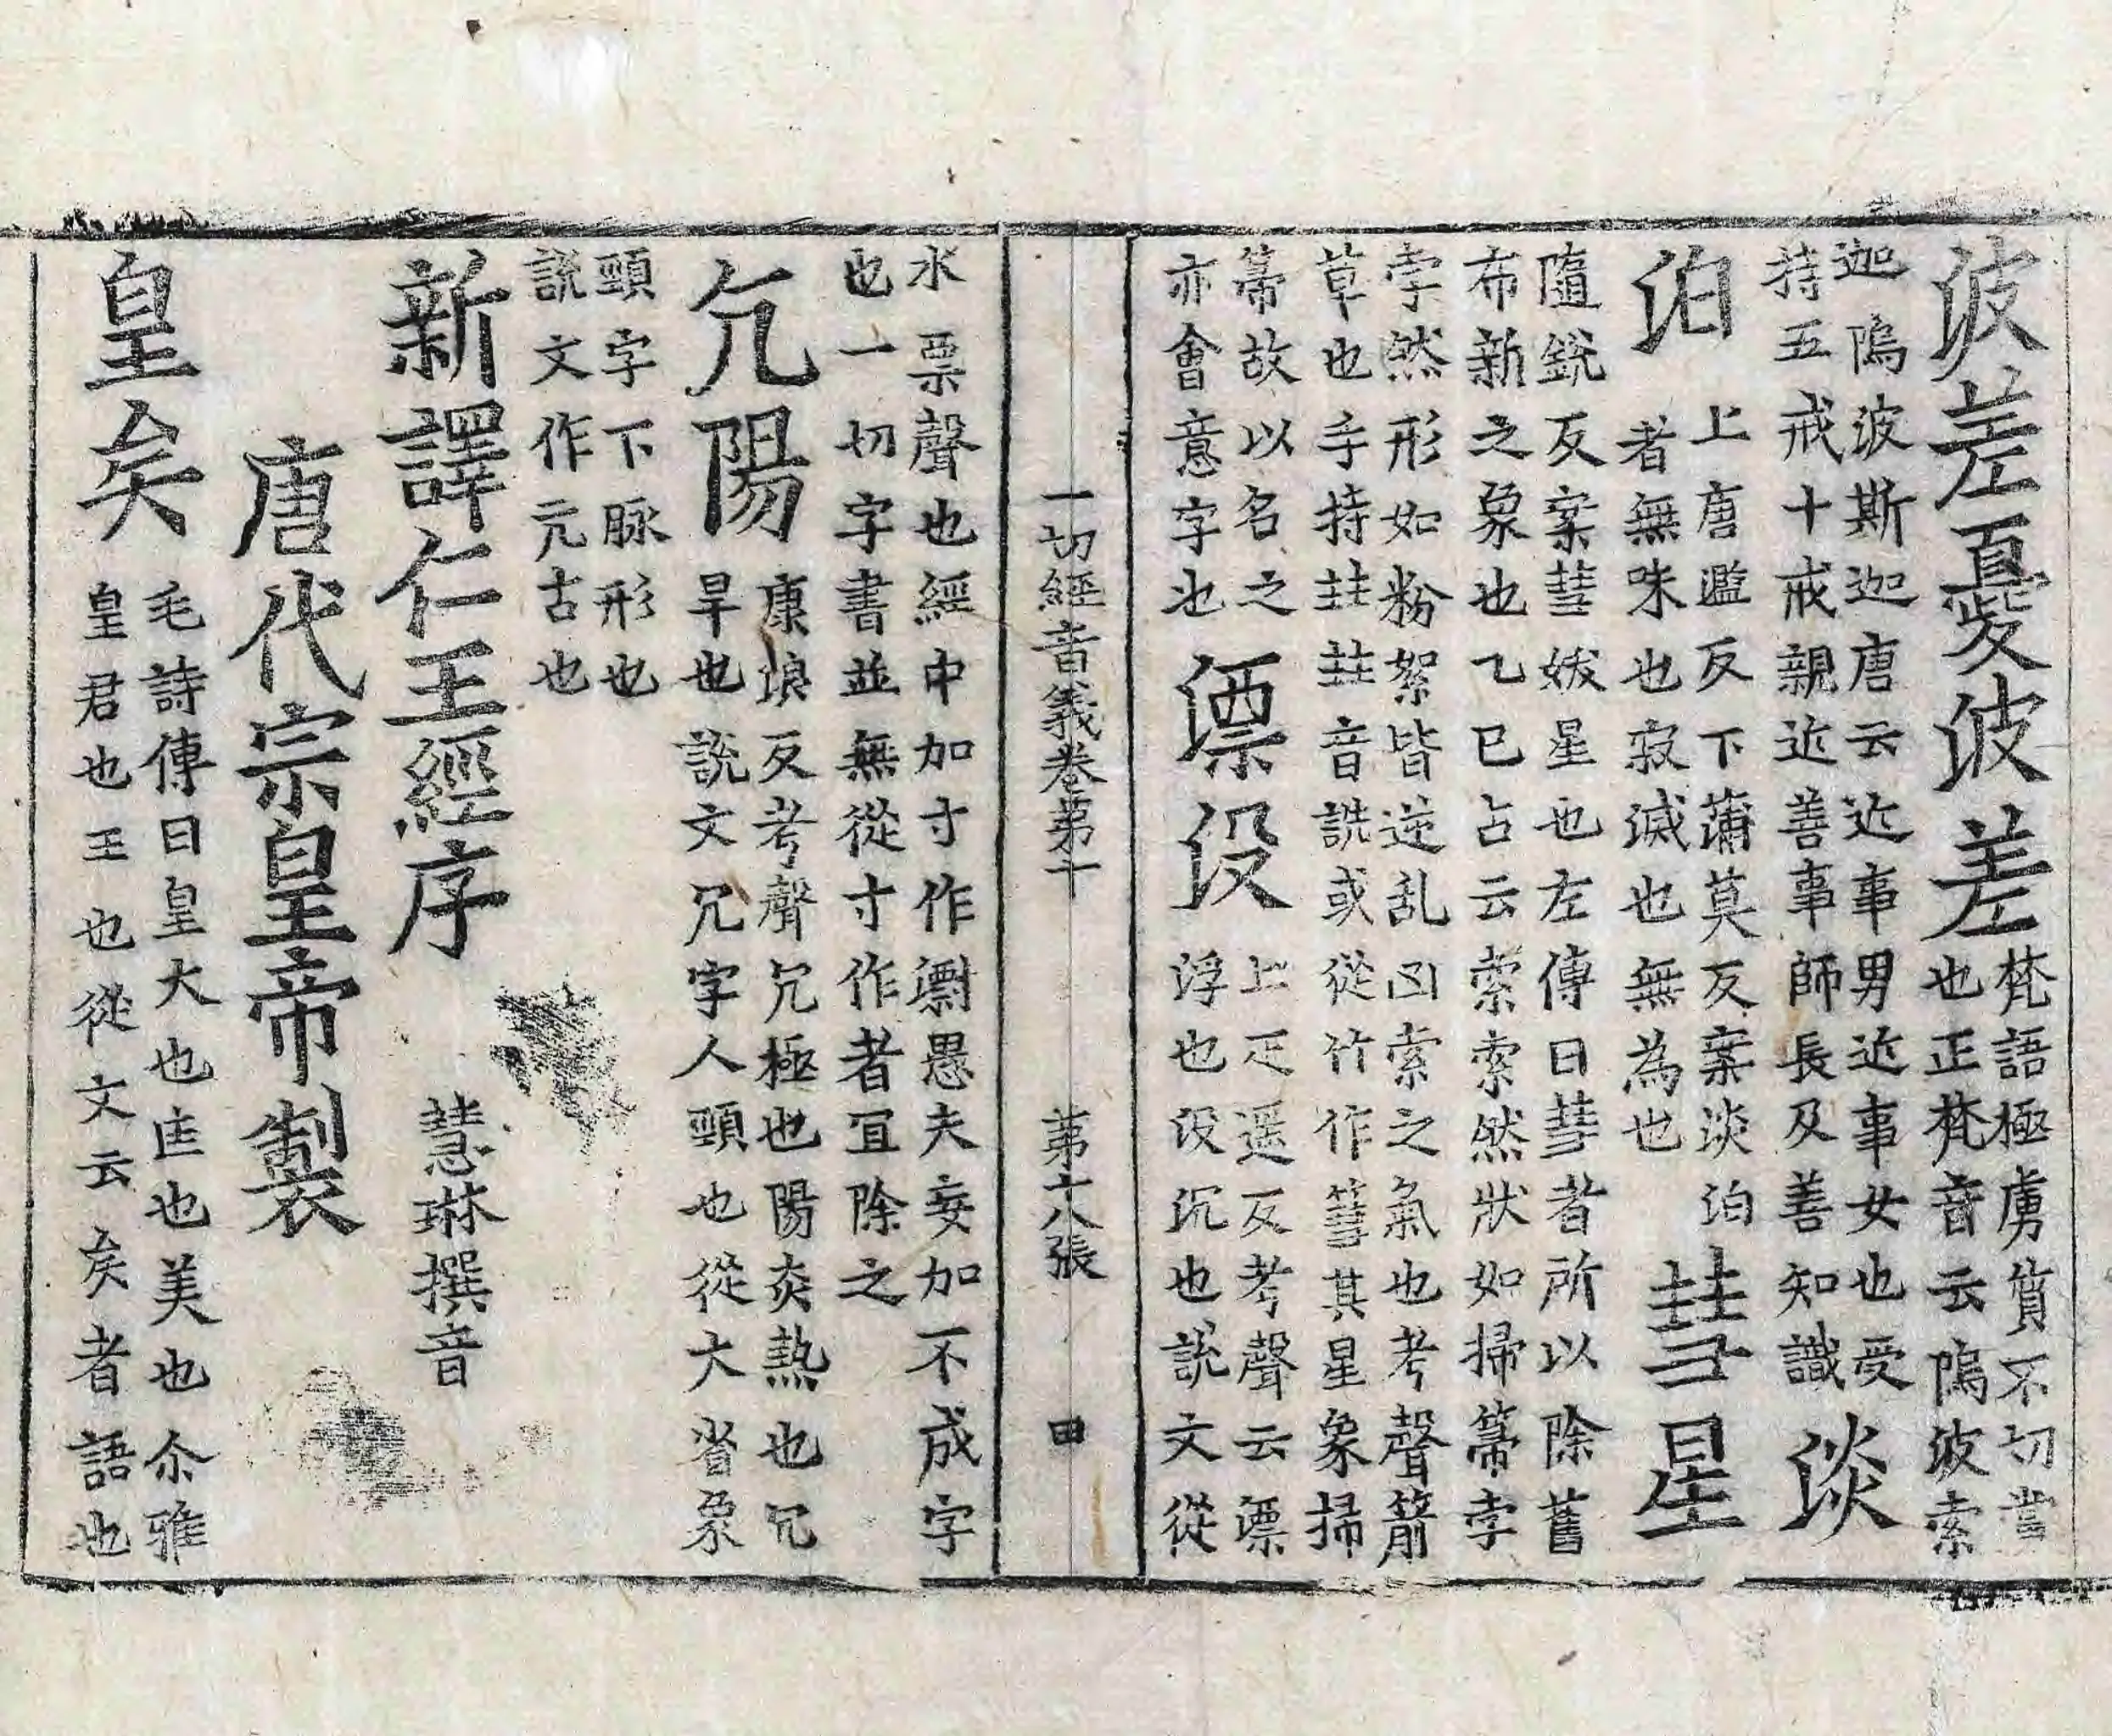 波差憂波差
梵語極虜質不切當
也正梵音云鄔波索
迦鄔波斯迦唐云近事男近事女也受
持五戒十戒親近善事師長及善知識
淡
泊
上唐濫反下蒲莫反案淡泊
者無味也寂滅也無為也
彗星
隨銳反案彗妭星也左傳曰彗者所以除舊
布新之象也乙巳占云索索然狀如掃箒孛
孛然形如粉絮皆逆乱凶索之氣也考聲箭
草也手持𡗗𡗗音詵或從竹作篲其星象掃
箒故以名之
亦會意字也
漂没
上疋遥反考聲云漂
浮也没沉也説文從
水票聲也經中加寸作㶑愚夫妄加不成字
也一切字書並無從寸作者冝除之
亢陽
康埌反考聲亢極也陽炎熱也亢
旱也説文亢字人頸也從大省象
頸字下脉形也
説文作亢古也
新譯仁王經序
慧琳撰音
唐代宗皇帝製
皇矣
毛詩傳曰皇大也匡也美也尒雅
皇君也王也從文云矣者語也
一切經音義卷第十
第六張
田